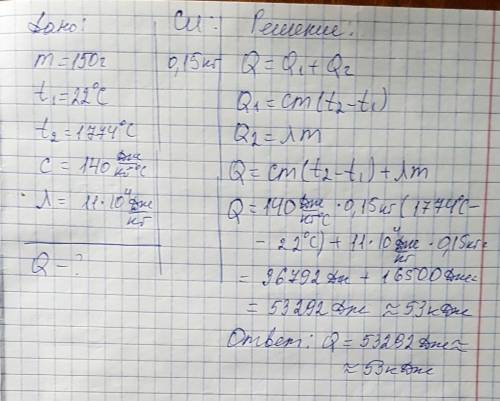 Дано:
m = 150г
t₁ = 22°C
t₂ = 1774°C
c = 140 Дж/кг°C
λ = 11·10⁴ Дж/кг
Q - ?
СИ:
0,15кг
Решение:
Q = Q₁ + Q₂
Q₁ = cm(t₂-t₁)
Q₂ = λm
Q = cm(t₂-t₁) + λm
Q = 140 Дж/кг°C · 0,15кг (1774°C-
- 22°C) + 11·10⁴ Дж/кг · 0,15кг=
= 36792 Дж + 16500 Дж=
= 53292 Дж ≈ 53кДж
Ответ: Q = 53292 Дж ≈
≈ 53кДж